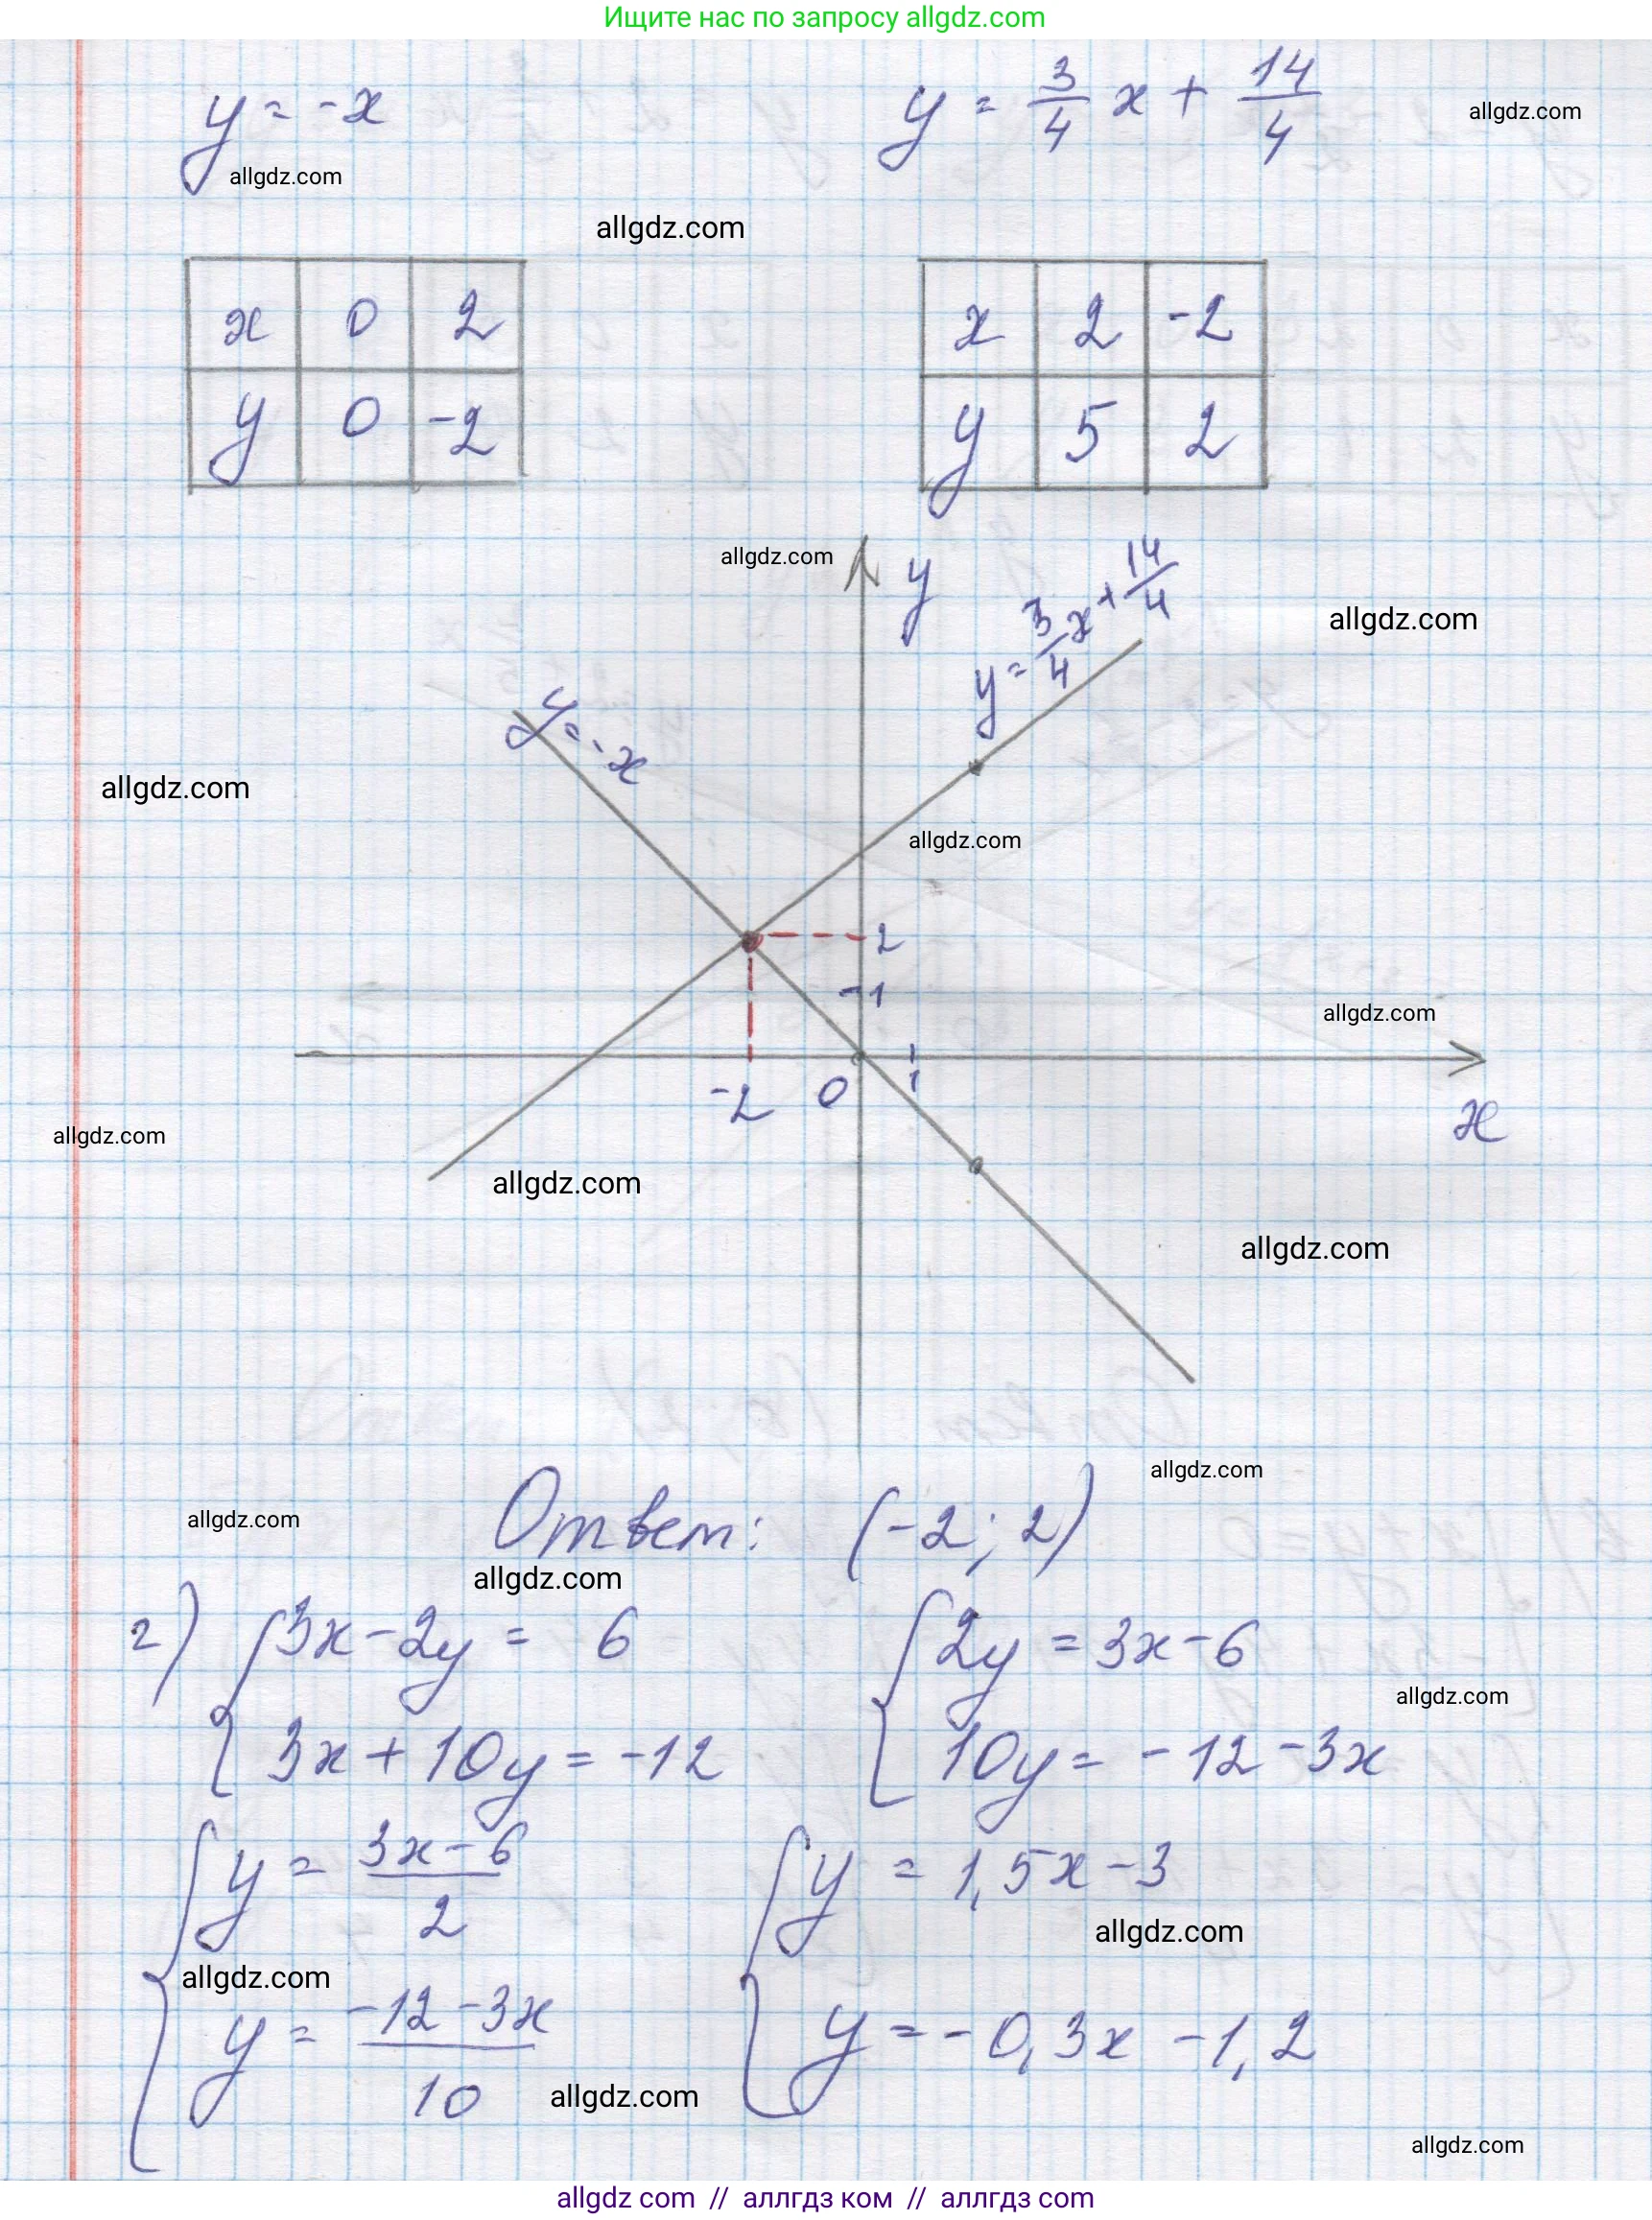 Ищите нас по запросу allgdz.com
y = -x
y = 3/4 x + 14/4
allgdz.com
allgdz.com
allgdz.com
x 0 2
y 0 -2
x 2 -2
y 5 2
allgdz.com
y
y = 3/4 x + 14/4
allgdz.com
y = -x
allgdz.com
allgdz.com
2
1
allgdz.com
-2 0 1
x
allgdz.com
allgdz.com
allgdz.com
allgdz.com
allgdz.com
Ответ: (-2; 2)
allgdz.com
г) { 3x - 2y = 6
3x + 10y = -12
{ 2y = 3x - 6
10y = -12 - 3x
allgdz.com
{ y = (3x - 6)/2
y = (-12 - 3x)/10
{ y = 1,5x - 3
y = -0,3x - 1,2
allgdz.com
allgdz.com
allgdz.com
allgdz.com
allgdz com // аллгдз ком // аллгдз com